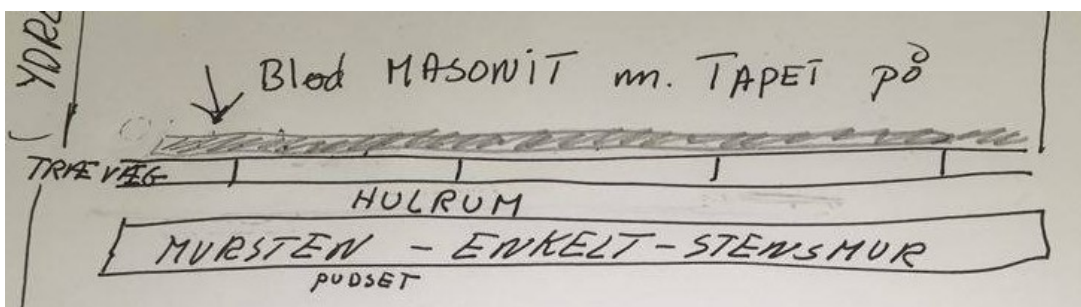 YDRE
Blød MASONIT m. TAPET på
TRÆVÆG
HULRUM
MURSTEN - ENKELT-STENSMUR
PUDSET